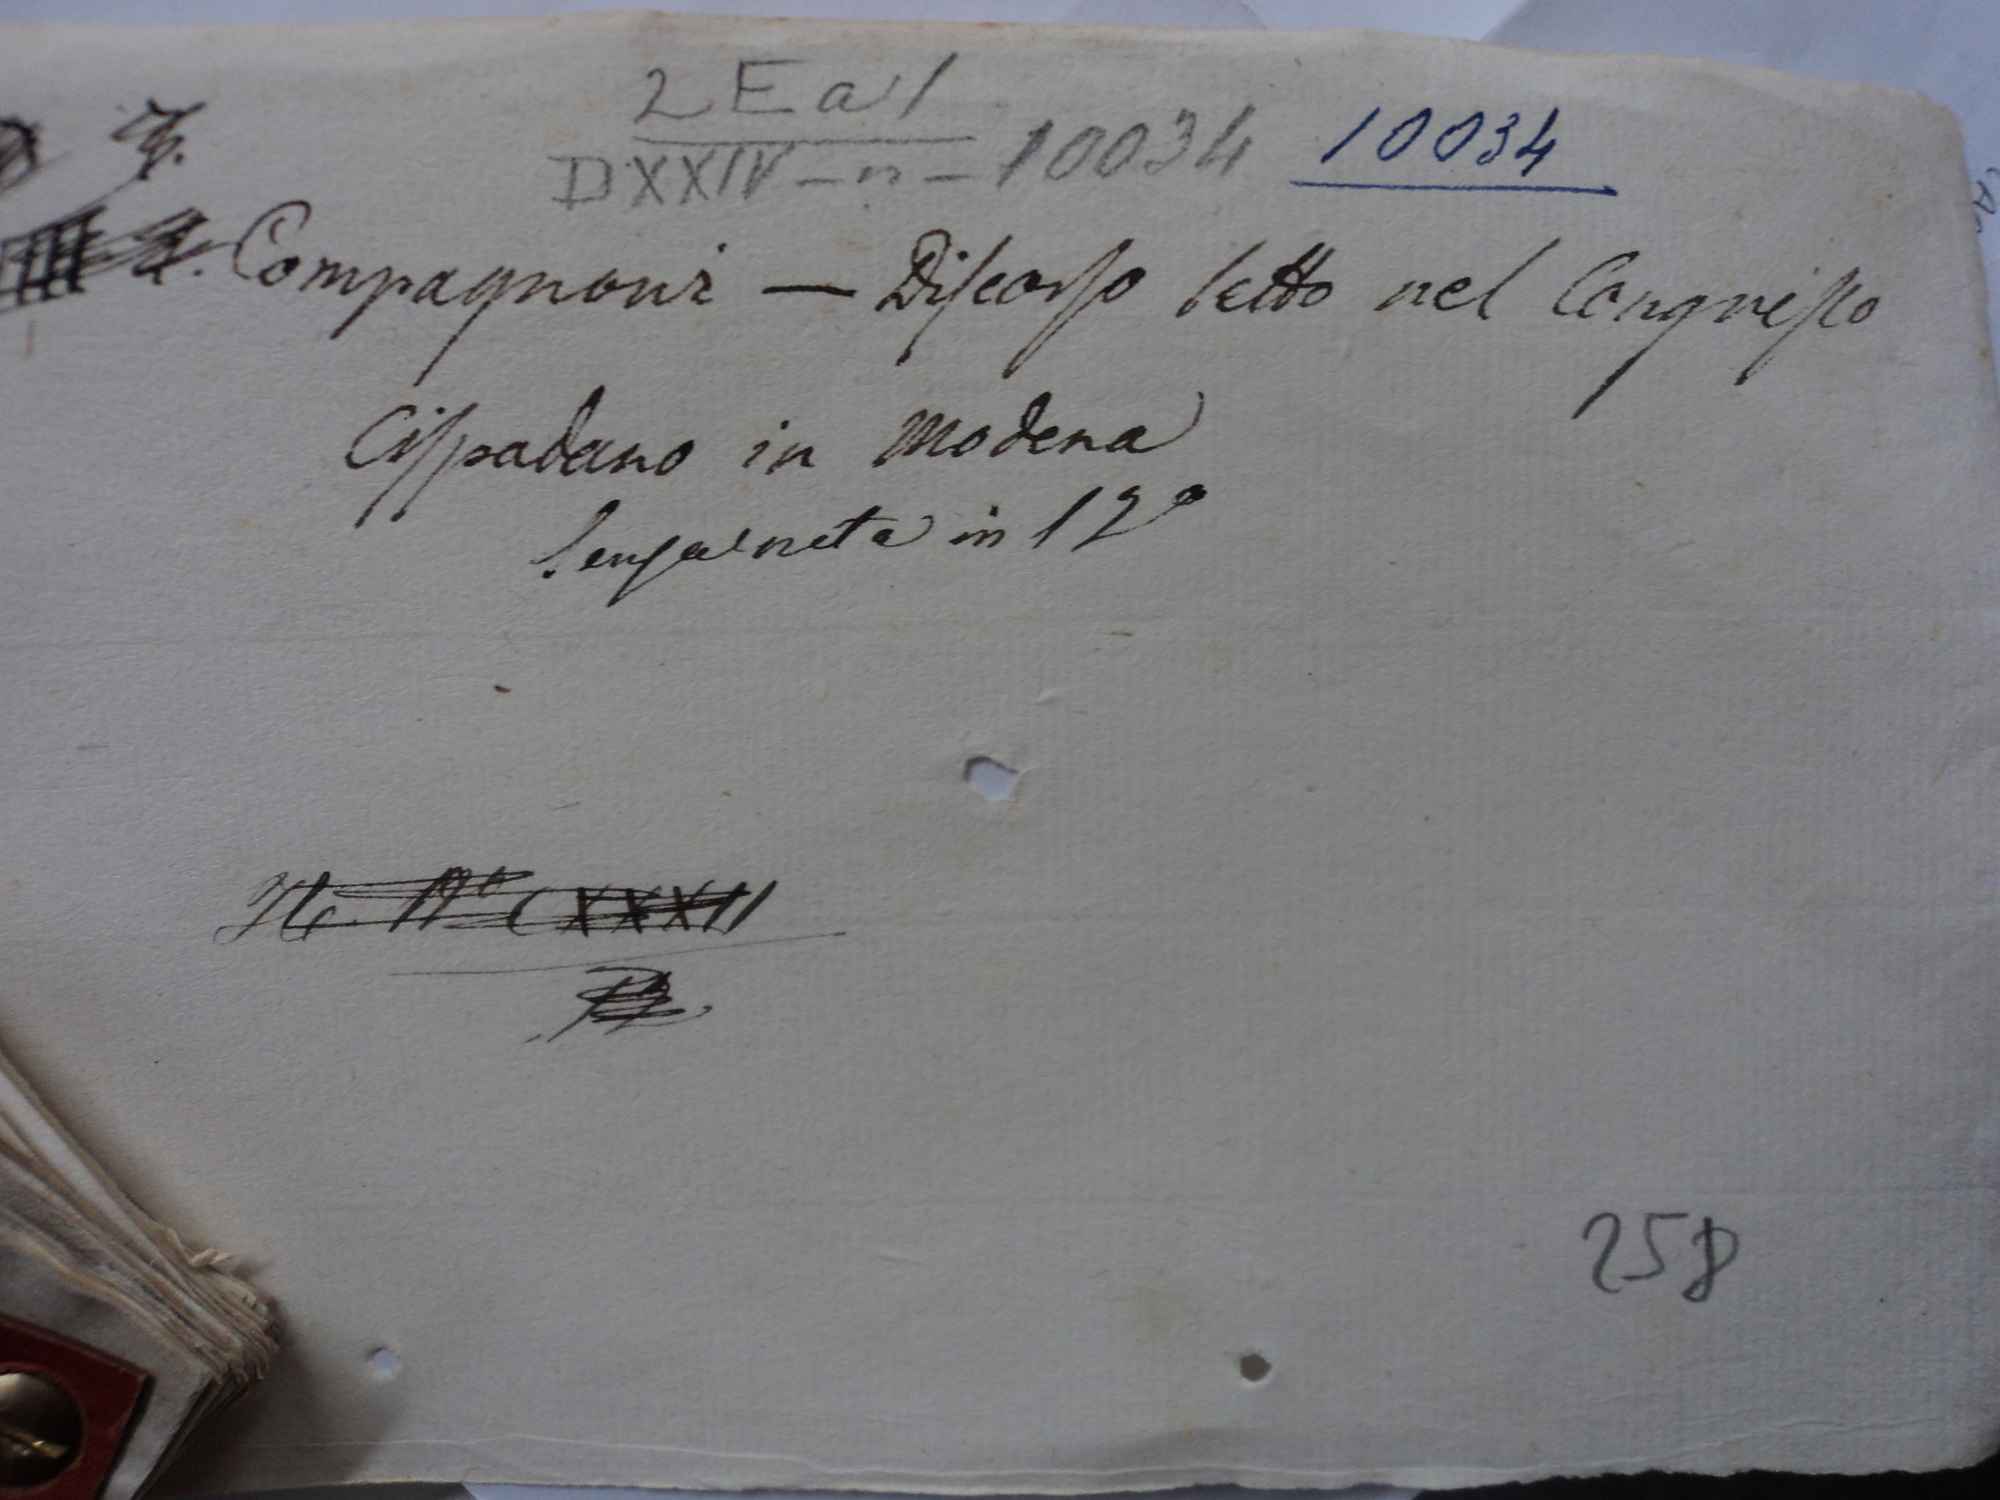 2 E a 1
DXXIV - n - 10034 10034
Compagnoni — Discorso letto nel Congresso
Cispadano in Modena
Senza nota in 12°
CXXXII
258